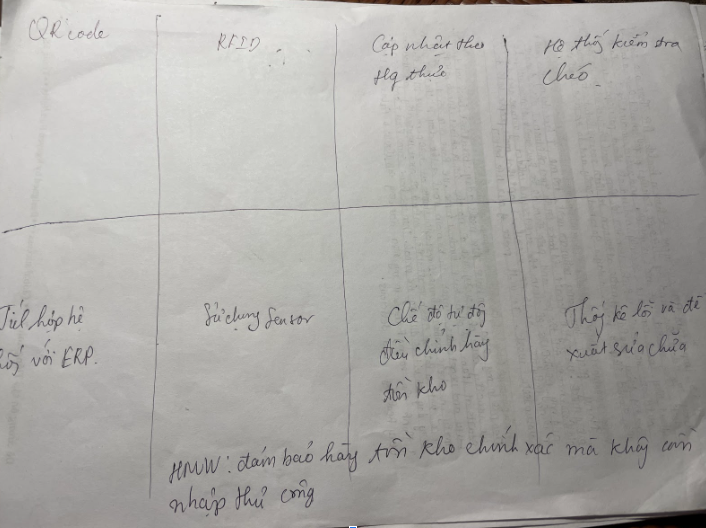 QR code
RFID
Cập nhật theo
tg thức
Hệ thố kiểm tra
chéo
Tích hợp hệ
với ERP.
Sử dụng Sensor
Chế độ tự độ
điều chỉnh hàg
tồn kho
Thốg kê lỗi và đề
xuất sửa chữa
HMW: đảm bảo hàg tồn kho chính xác mà khôg cần
nhập thủ công